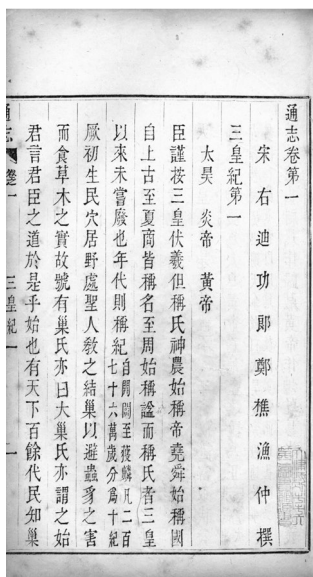 通志卷第一
宋右迪功郎鄭樵漁仲撰
三皇紀第一
太昊 炎帝 黃帝
臣謹按三皇伏羲但稱氏神農始稱帝堯舜始稱國
自上古至夏商皆稱名至周始稱諡而稱氏者三皇
以來未嘗廢也年代則稱紀自開闢至獲麟凡二百
七十六萬歲分爲十紀
厥初生民穴居野處聖人教之結巢以避蟲豸之害
而食草木之實故號有巢氏亦曰大巢氏亦謂之始
君言君臣之道於是乎始也有天下百餘代民知巢
通志 卷一 三皇紀一 一